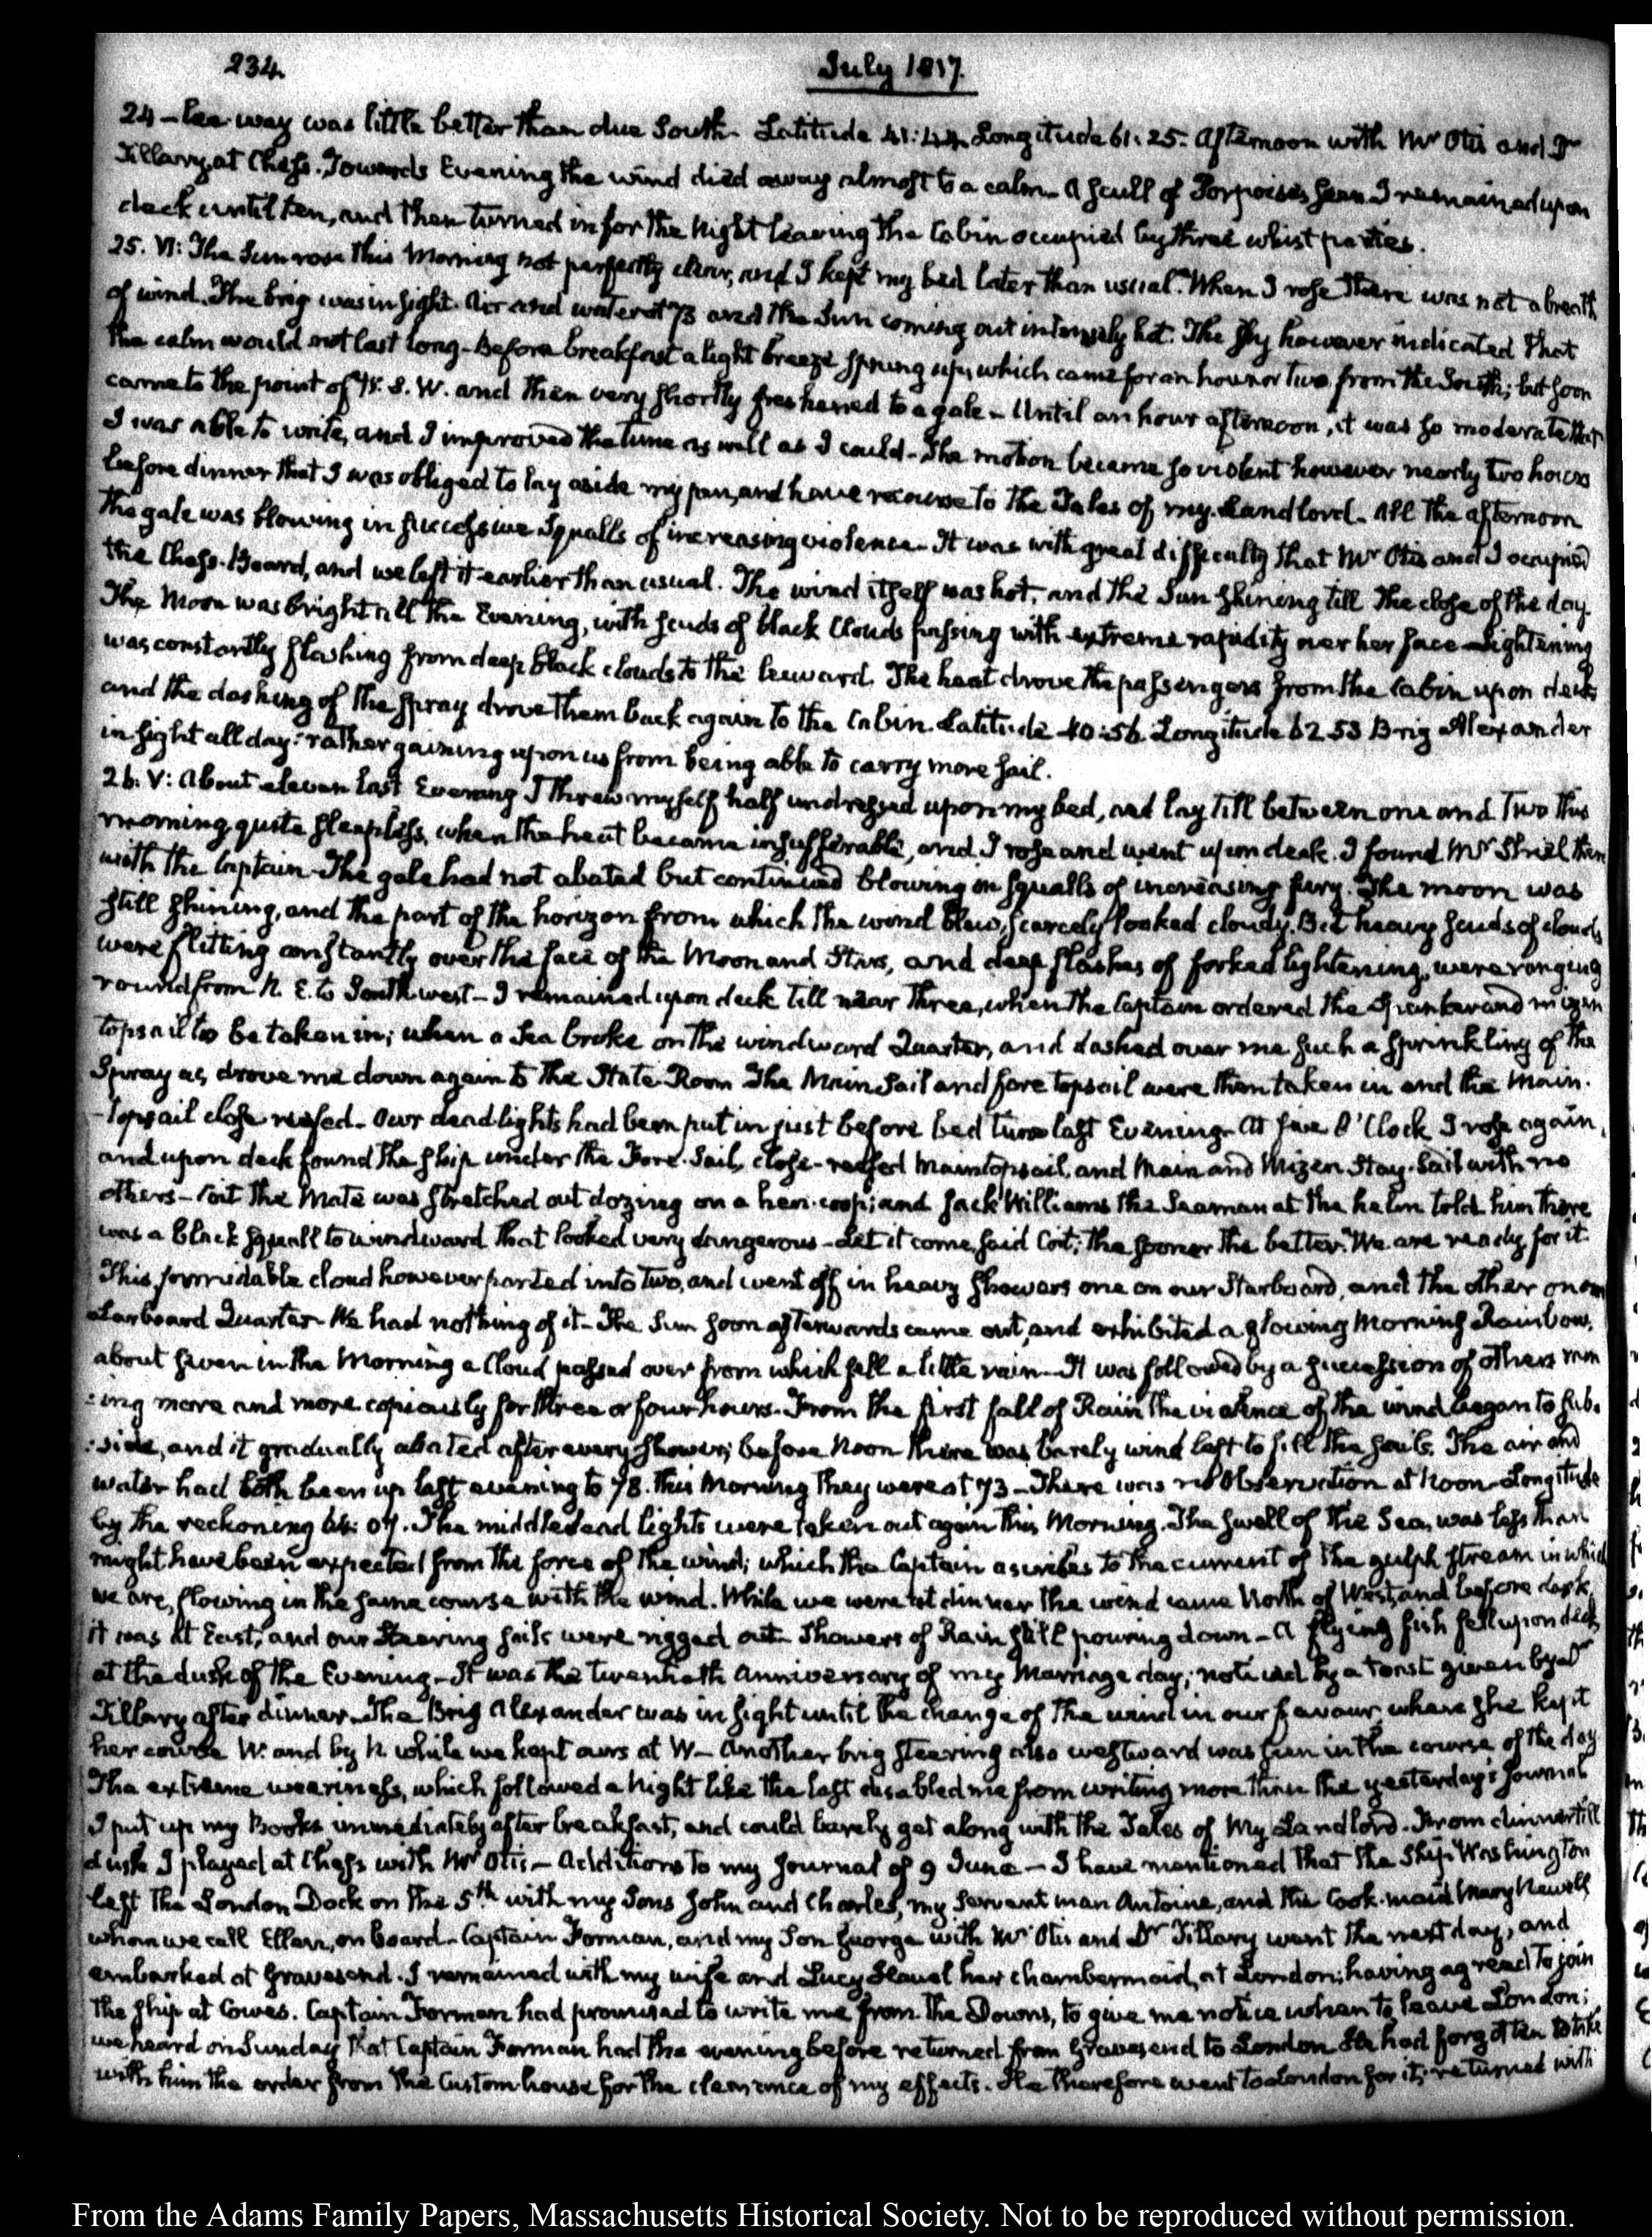 234.
July 1817.
24 – lee-way was little better than due South – Latitude 41:44. Longitude 61:25. Afternoon with Mr Otis and Dr
Tillary at Chess. Towards Evening the wind died away almost to a calm – A scull of Porpoises seen. I remained upon
deck until ten, and then turned in for the Night leaving the Cabin occupied by three whist parties.
25. VI: The Sun rose this Morning not perfectly clear, and I kept my bed later than usual. When I rose there was not a breath
of wind. The brig was in sight. Air and water at 73 and the Sun coming out intensely hot. The sky however indicated that
the calm would not last long – Before breakfast a light breeze sprung up, which came for an hour or two from the South; but soon
came to the point of W. S. W. and then very shortly freshened to a gale – Until an hour afternoon, it was so moderate that
I was able to write, and I improved the time as well as I could – The motion became so violent however nearly two hours
before dinner that I was obliged to lay aside my pen, and have recourse to the Tales of my Landlord – All the afternoon
the gale was blowing in successive Squalls of increasing violence – It was with great difficulty that Mr Otis and I occupied
the Chess-Board, and we left it earlier than usual. The wind itself was hot, and the Sun shining till the close of the day.
The Moon was bright all the Evening, with scuds of black Clouds passing with extreme rapidity over her face – Lightening
was constantly flashing from deep black clouds to the leeward. The heat drove the passengers from the Cabin upon deck
and the dashing of the spray drove them back again to the Cabin. Latitude 40:56. Longitude 62 53 Brig Alexander
in sight all day: rather gaining upon us from being able to carry more sail.
26. V: About eleven last Evening I threw myself half undressed upon my bed, and lay till between one and two this
morning quite sleepless, when the heat became insufferable, and I rose and went upon deck. I found Mr Shiel there
with the Captain – The gale had not abated but continued blowing in squalls of increasing fury. The moon was
still shining, and the part of the horizon from which the wind blew, scarcely looked cloudy. But heavy scuds of clouds
were flitting constantly over the face of the Moon and Stars, and deep flashes of forked lightening, were ranging
round from N. E. to South west – I remained upon deck till near three, when the Captain ordered the Spanker and mizen
topsail to be taken in; when a Sea broke on the windward Quarter, and dashed over me such a sprinkling of the
Spray as drove me down again to the State-Room The Main Sail and fore topsail were then taken in and the Main-
-topsail close reefed – Our dead lights had been put in just before bed time last Evening – At five O'Clock I rose again,
and upon deck found the ship under the Fore-Sail, close-reefed Maintopsail, and Main and Mizen Stay-Sail with no
others – Coit the Mate was stretched out dozing on a hen-coop; and Jack Williams the Seaman at the helm told him there
was a black squall to windward that looked very dangerous – Let it come, said Coit; the sooner the better. We are ready for it.
This formidable cloud however parted into two, and went off in heavy showers one on our Starboard, and the other on our
Larboard Quarter – We had nothing of it – The Sun soon afterwards came out, and exhibited a glowing Morning Rainbow.
about seven in the Morning a Cloud passed over from which fell a little rain – It was followed by a succession of others
:ing more and more copiously for three or four hours – From the first fall of Rain the violence of the wind began to sub-
:side, and it gradually abated after every shower; before Noon there was barely wind left to fill the sails. The air and
water had both been up last evening to 78. This Morning they were at 73 – There was no Observation at Noon – Longitude
by the reckoning 64:07. The middle dead lights were taken out again this Morning. The swell of the Sea, was less than
might have been expected from the force of the wind; which the Captain ascribes to the current of the gulph stream in which
we are, flowing in the same course with the wind. While we were at dinner the wind came North of West, and before dark
it was at East, and our Steering sails were rigged out. Showers of Rain still pouring down – A flying fish fell upon deck
at the dusk of the Evening – It was the twentieth Anniversary of my Marriage day; noticed by a toast given by Dr
Tillary after dinner – The Brig Alexander was in sight until the change of the wind in our favour, when she kept
her course W. and by N while we kept ours at W – Another brig steering also westward was seen in the course of the day.
The extreme weariness, which followed a Night like the last disabled me from writing more than the yesterday's journal
I put up my Books immediately after breakfast, and could barely get along with the Tales of My Landlord. From dinner till
dusk I played at Chess with Mr Otis – Additions to my Journal of 9 June – I have mentioned that the Ship Washington
left the London Dock on the 5th with my Sons John and Charles, my Servant man Antoine, and the Cook-maid Mary Newell
whom we call Ellen, on board – Captain Forman, and my Son George with Mr Otis and Dr Tillary went the next day, and
embarked at Gravesend. I remained with my wife and Lucy her chambermaid, at London; having agreed to join
the ship at Cowes. Captain Forman had promised to write me from the Downs, to give me notice when to leave London;
we heard on Sunday that Captain Forman had the evening before returned from Gravesend to London He had forgotten to take
with him the order from the Custom-house for the clearance of my effects. He therefore went to London for it; returned with
From the Adams Family Papers, Massachusetts Historical Society. Not to be reproduced without permission.